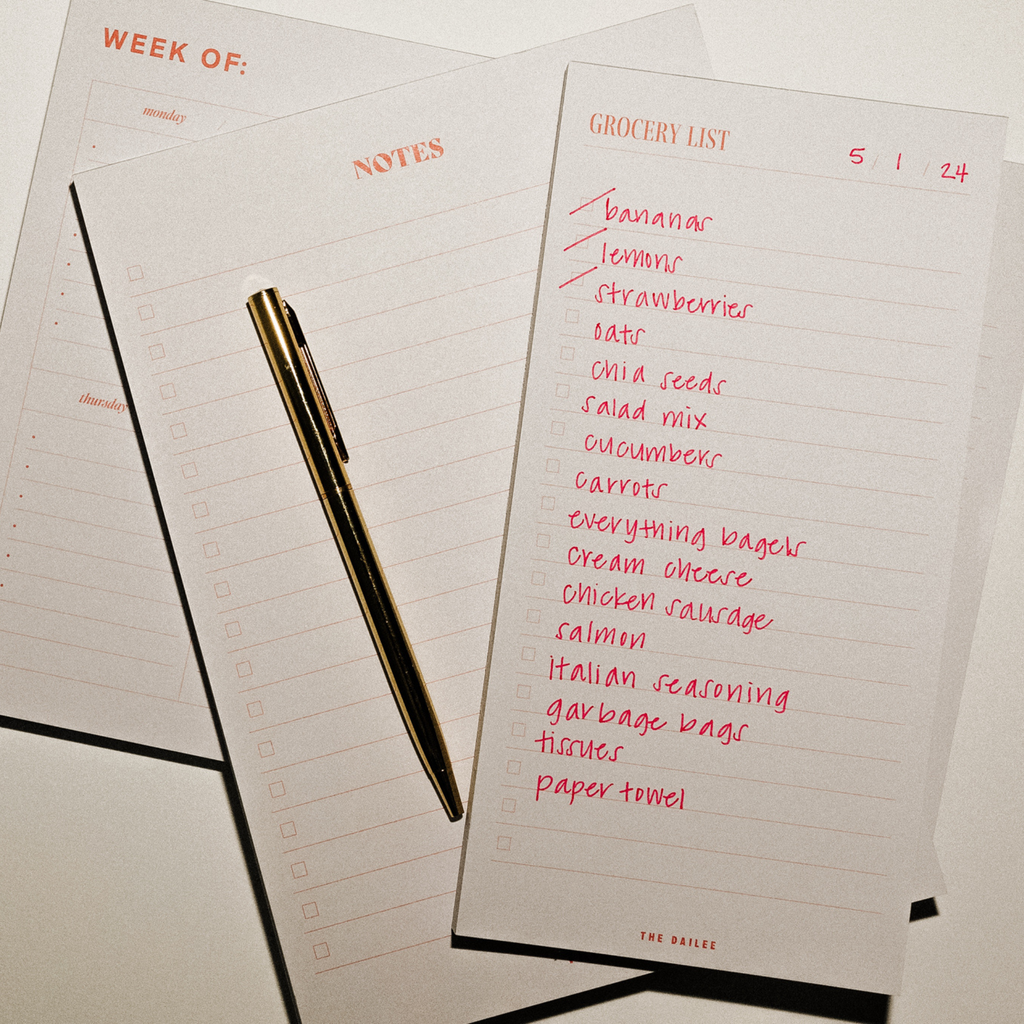 WEEK OF:
monday
thursday
NOTES
GROCERY LIST
5 / 1 / 24
bananas
lemons
strawberries
oats
chia seeds
salad mix
cucumbers
carrots
everything bagels
cream cheese
chicken sausage
salmon
italian seasoning
garbage bags
tissues
paper towel
THE DAILEE